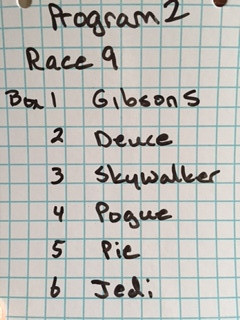 Program 2
Race 9
Box 1 Gibson S
2 Deuce
3 Skywalker
4 Pogue
5 Pie
6 Jedi